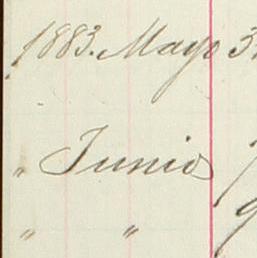 1883. Mayo 3
" Junio
" "